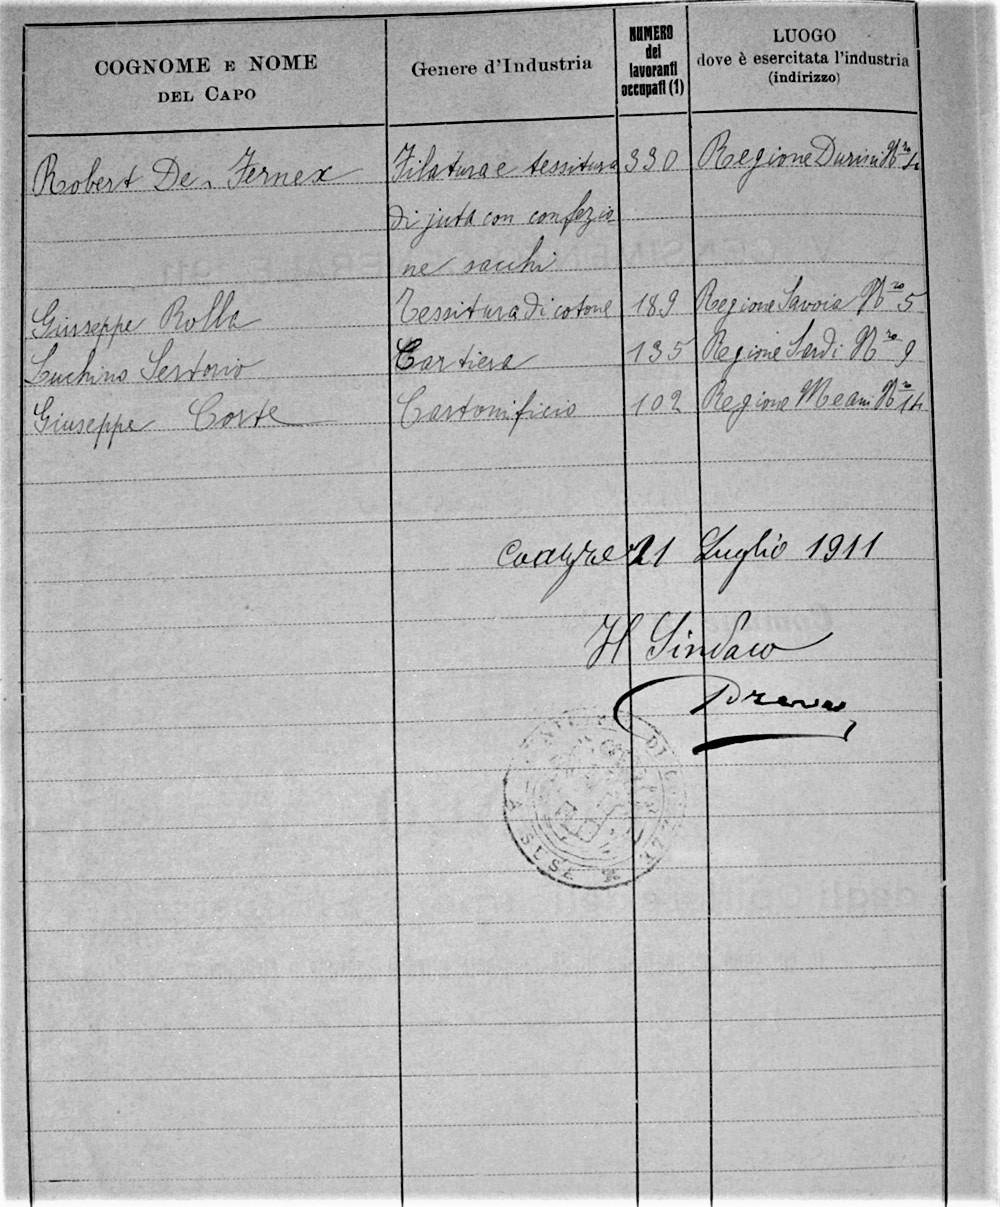 COGNOME E NOME
DEL CAPO
Genere d'Industria
NUMERO
dei
lavoranti
occupati (1)
LUOGO
dove è esercitata l'industria
(indirizzo)
Robert De Fernex Filatura e tessitura 330 Regione Durisii Nro 4
di juta con confezio
ne sacchi
Giuseppe Rolla Tessitura di cotone 189 Regione Savoia Nro 5
Luchino Sertorio Cartiera 135 Regione Sardi Nro 9
Giuseppe Corte Cartonificio 102 Regione Meani Nro 14
Coazze 21 Luglio 1911
Il Sindaco
V CENSIMENTO GENERALE 911
Comune